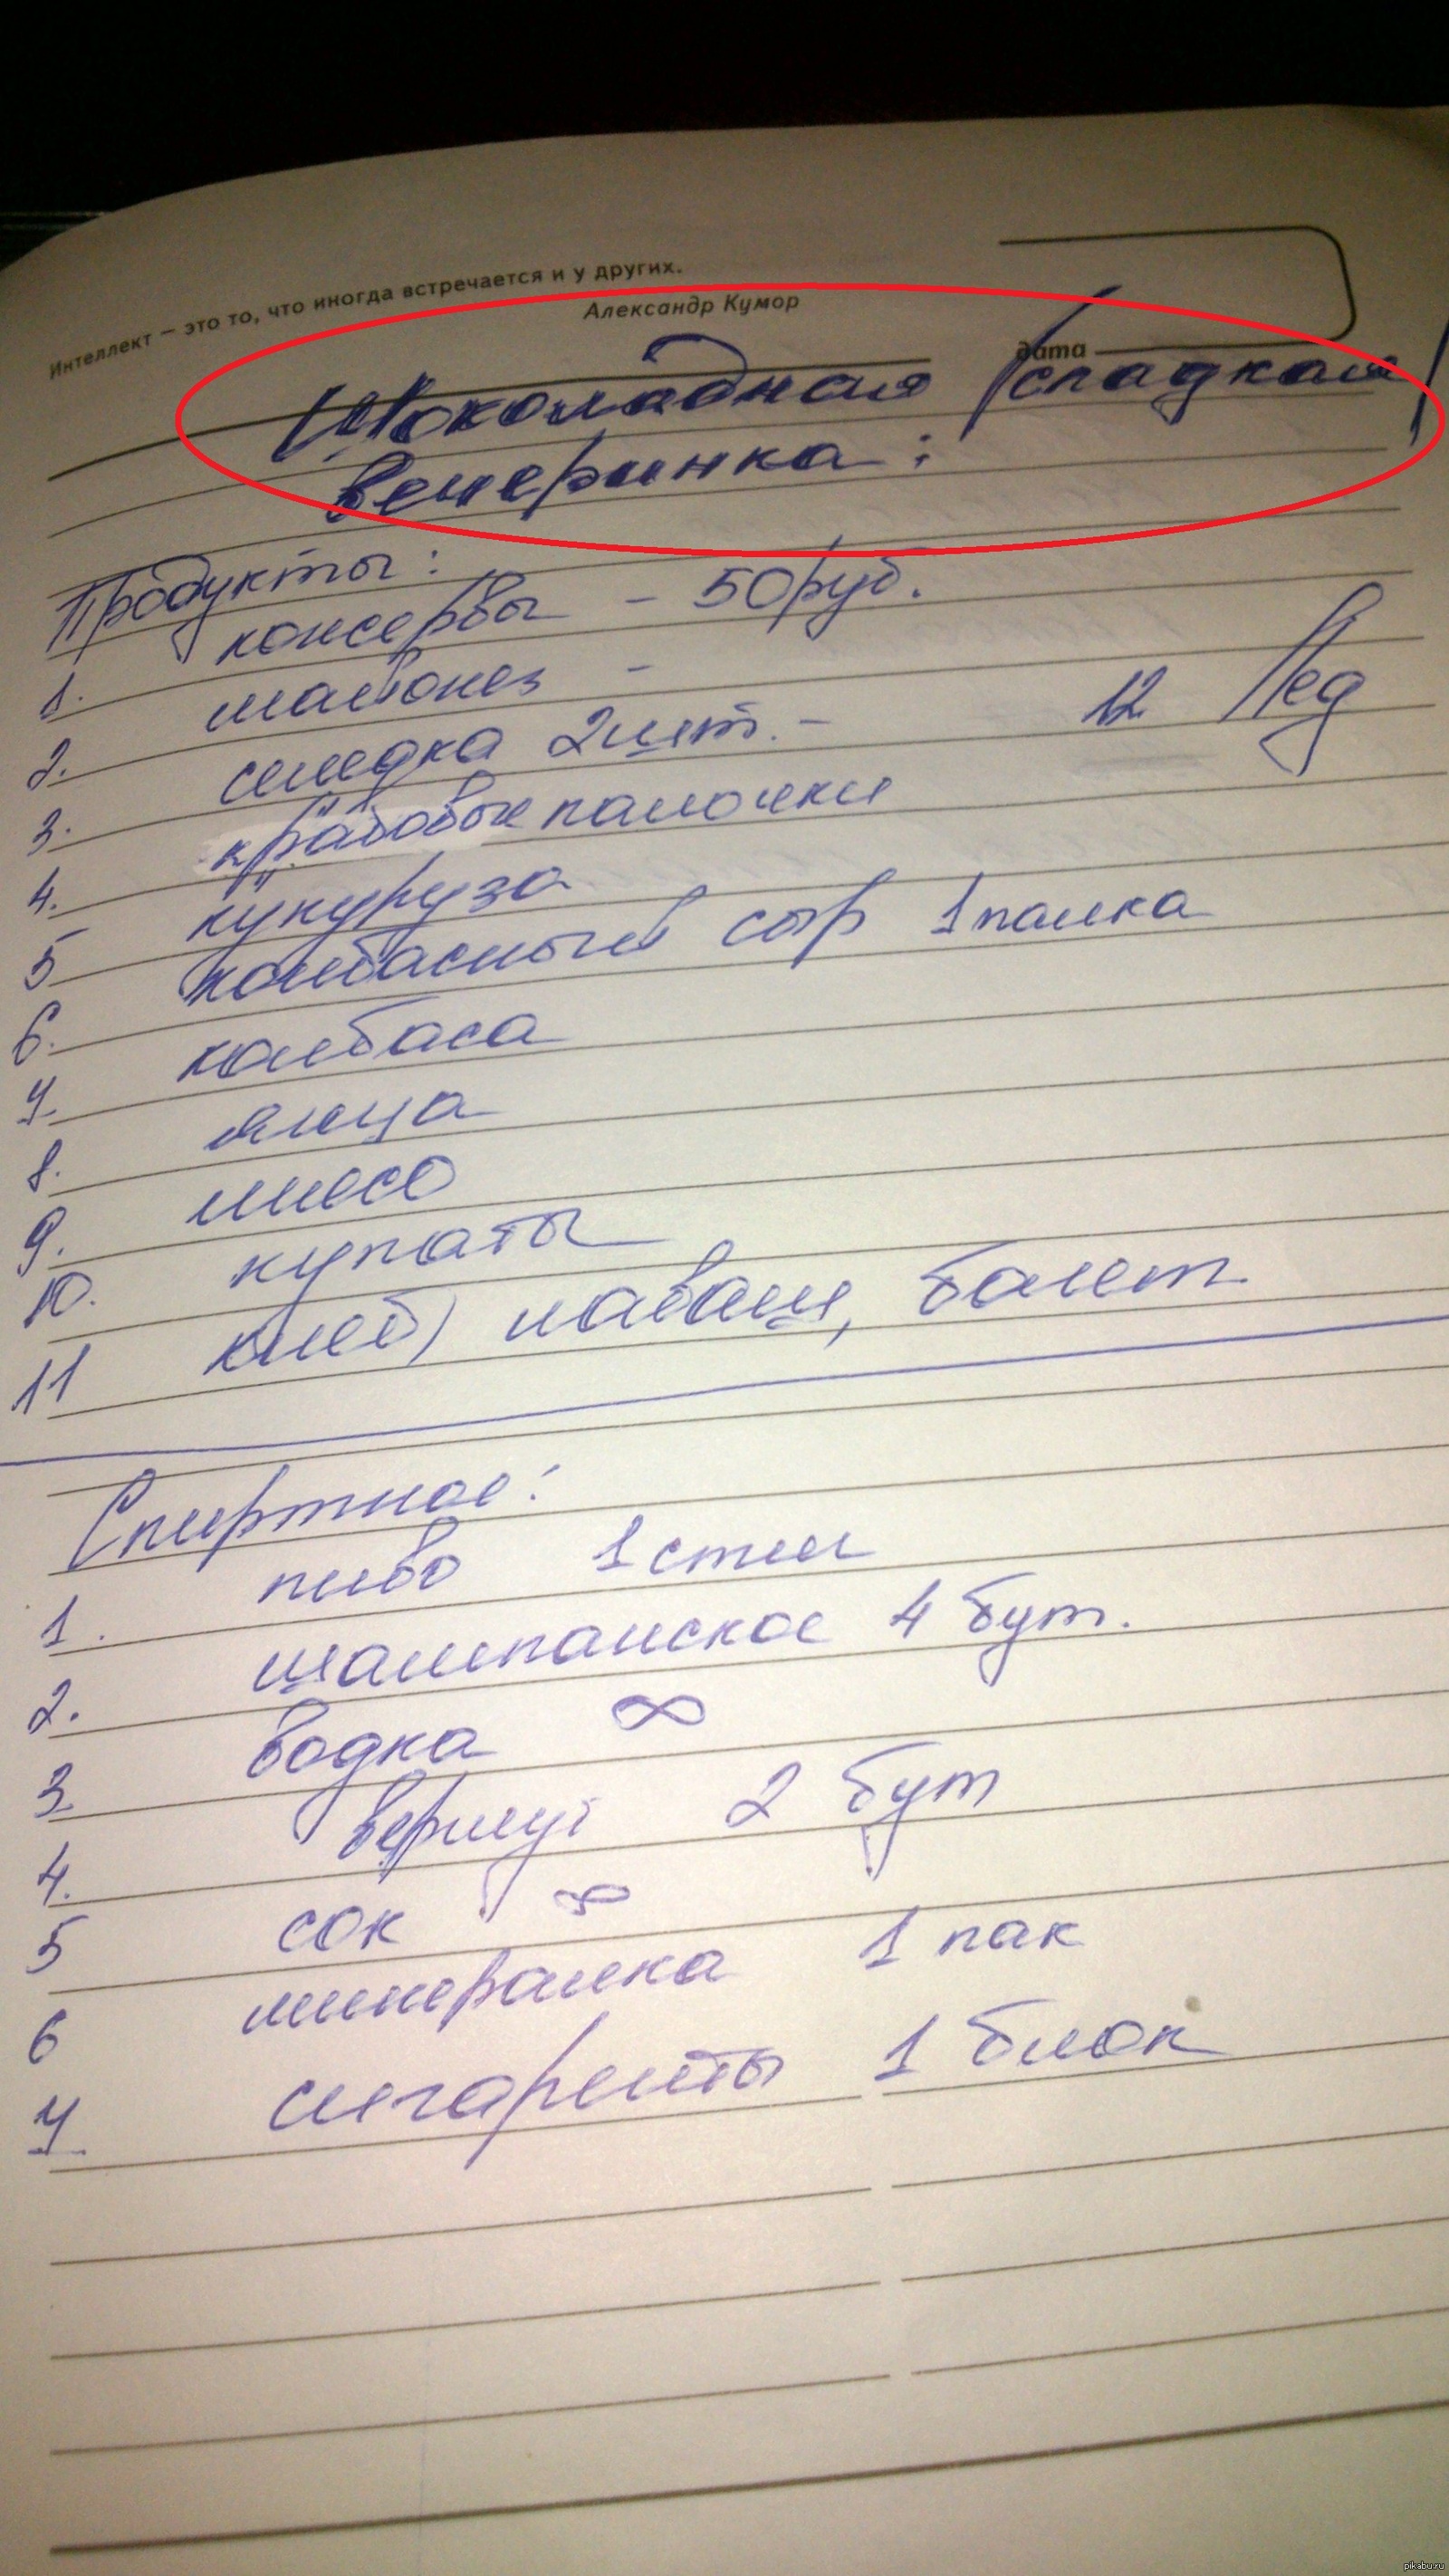 Интеллект – это то, что иногда встречается и у других.
Александр Кумор
дата
Шоколадная /сладкая/
вечеринка:
Продукты:
1. консервы - 50руб.
2. майонез -
3. селедка 2шт. -
12 Лед
4. "крабовые" палочки
5 кукуруза
6. колбасный сыр 1 палка
7. колбаса
8. яйца
9. мясо
10. купаты
11 хлеб, лаваш, батет
Спиртное:
1. пиво 1 стел
2. шампанское 4 бут.
3. водка ∞
4. вермут 2 бут
5 сок ∞
6 минералка 1 пак
7 сигареты 1 блок
pikabu.ru